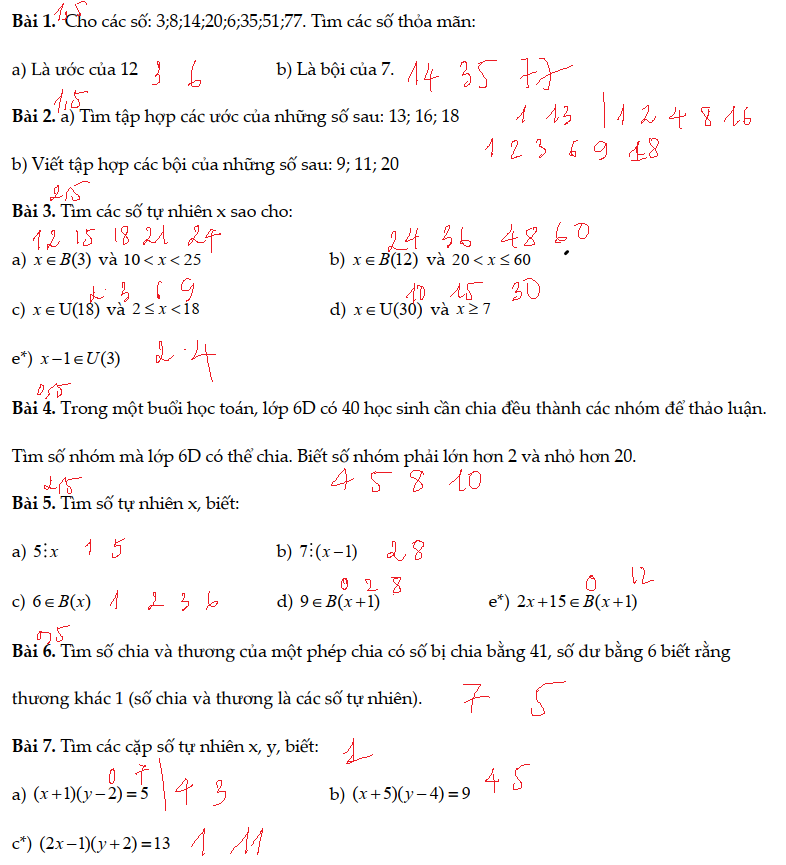 1,5
Bài 1. Cho các số: 3;8;14;20;6;35;51;77. Tìm các số thỏa mãn:
a) Là ước của 12 3 6 b) Là bội của 7. 14 35 77
1,5
Bài 2. a) Tìm tập hợp các ước của những số sau: 13; 16; 18 1 13 | 1 2 4 8 16
1 2 3 6 9 18
b) Viết tập hợp các bội của những số sau: 9; 11; 20
2,5
Bài 3. Tìm các số tự nhiên x sao cho:
12 15 18 21 24 24 36 48 60
a) x ∈ B(3) và 10 < x < 25 b) x ∈ B(12) và 20 < x ≤ 60
2 3 6 9 10 15 30
c) x ∈ U(18) và 2 ≤ x < 18 d) x ∈ U(30) và x ≥ 7
e*) x − 1 ∈ U(3) 2 4
0,5
Bài 4. Trong một buổi học toán, lớp 6D có 40 học sinh cần chia đều thành các nhóm để thảo luận.
Tìm số nhóm mà lớp 6D có thể chia. Biết số nhóm phải lớn hơn 2 và nhỏ hơn 20.
4 5 8 10
2,5
Bài 5. Tìm số tự nhiên x, biết:
a) 5⋮x 1 5 b) 7⋮(x − 1) 2 8
0 2 8 0 12
c) 6 ∈ B(x) 1 2 3 6 d) 9 ∈ B(x + 1) e*) 2x + 15 ∈ B(x + 1)
0,5
Bài 6. Tìm số chia và thương của một phép chia có số bị chia bằng 41, số dư bằng 6 biết rằng
thương khác 1 (số chia và thương là các số tự nhiên). 7 5
Bài 7. Tìm các cặp số tự nhiên x, y, biết: 1
0 7
a) (x + 1)(y − 2) = 5 | 4 3 b) (x + 5)(y − 4) = 9 4 5
c*) (2x − 1)(y + 2) = 13 1 11